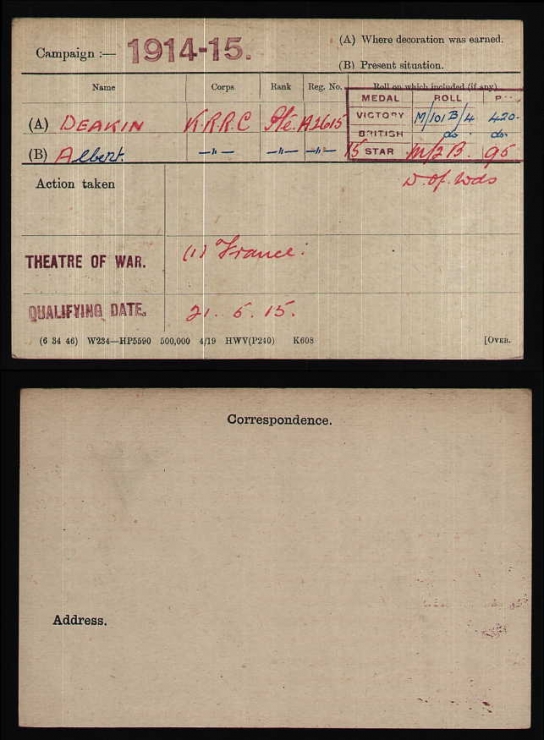 Campaign :— 1914-15.
(A) Where decoration was earned.
(B) Present situation.
Name Corps Rank Reg. No. Roll on which included (if any)
MEDAL ROLL
(A) DEAKIN K.R.R.C Pte. A2615 VICTORY M/101B/4 420.
BRITISH do do.
(B) Albert. —"— —"— —"— 15 STAR M/2B. 95
Action taken D. of Wds
THEATRE OF WAR. (1) France.
QUALIFYING DATE. 21. 5. 15.
(6 34 46) W234—HP5590 500,000 4/19 HWV(P240) K608 [OVER.
Correspondence.
Address.